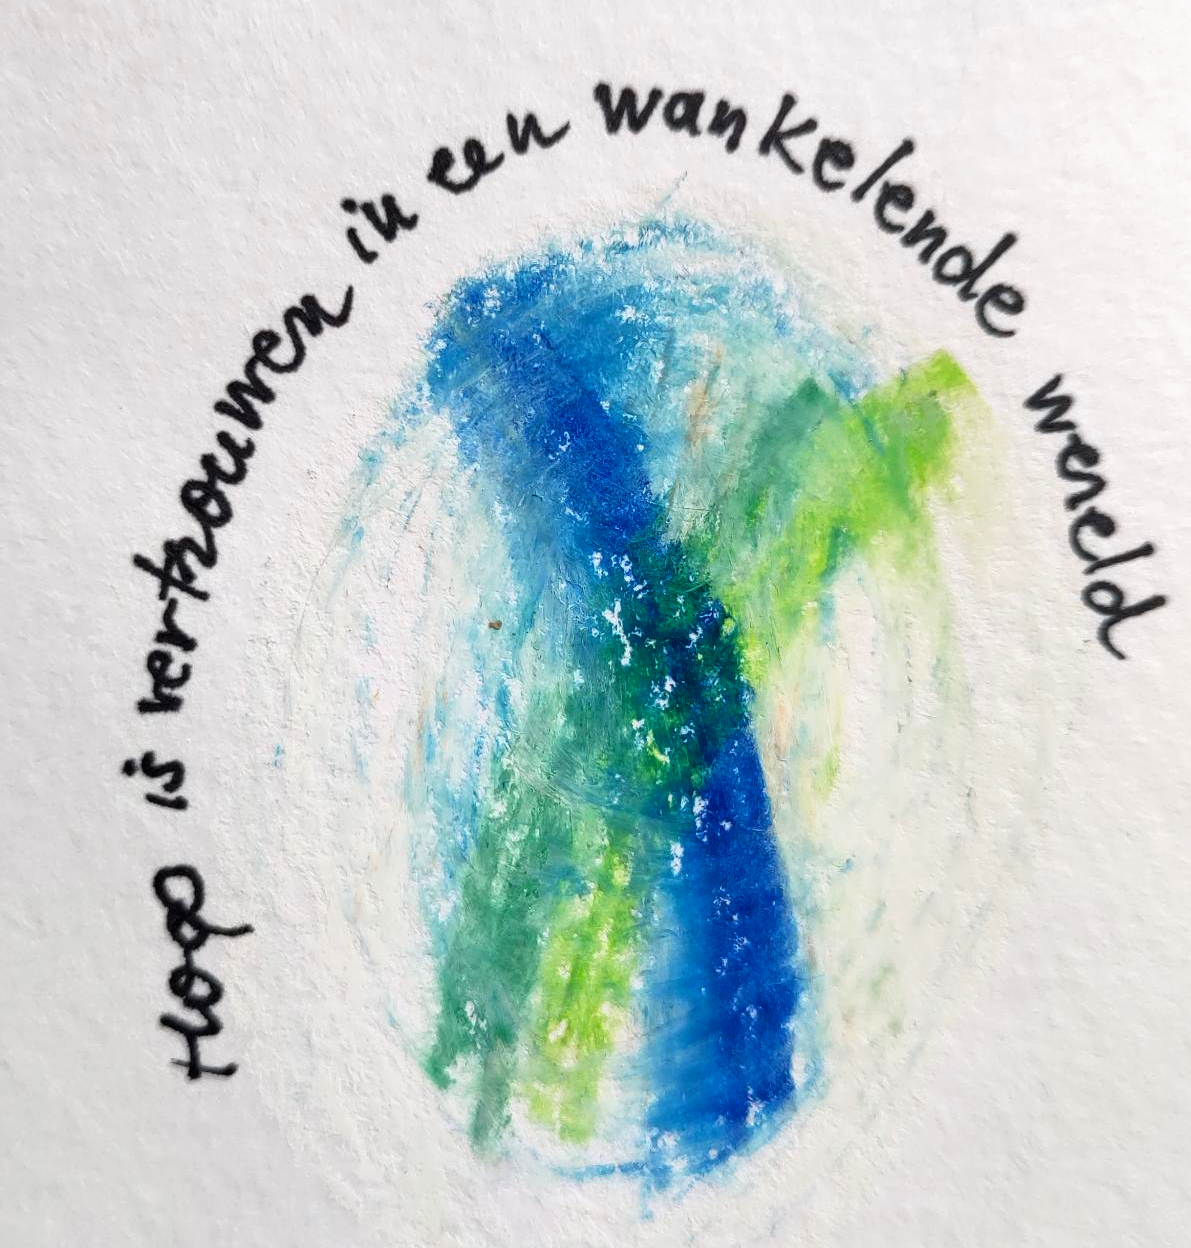 Hoop is vertrouwen in een wankelende wereld